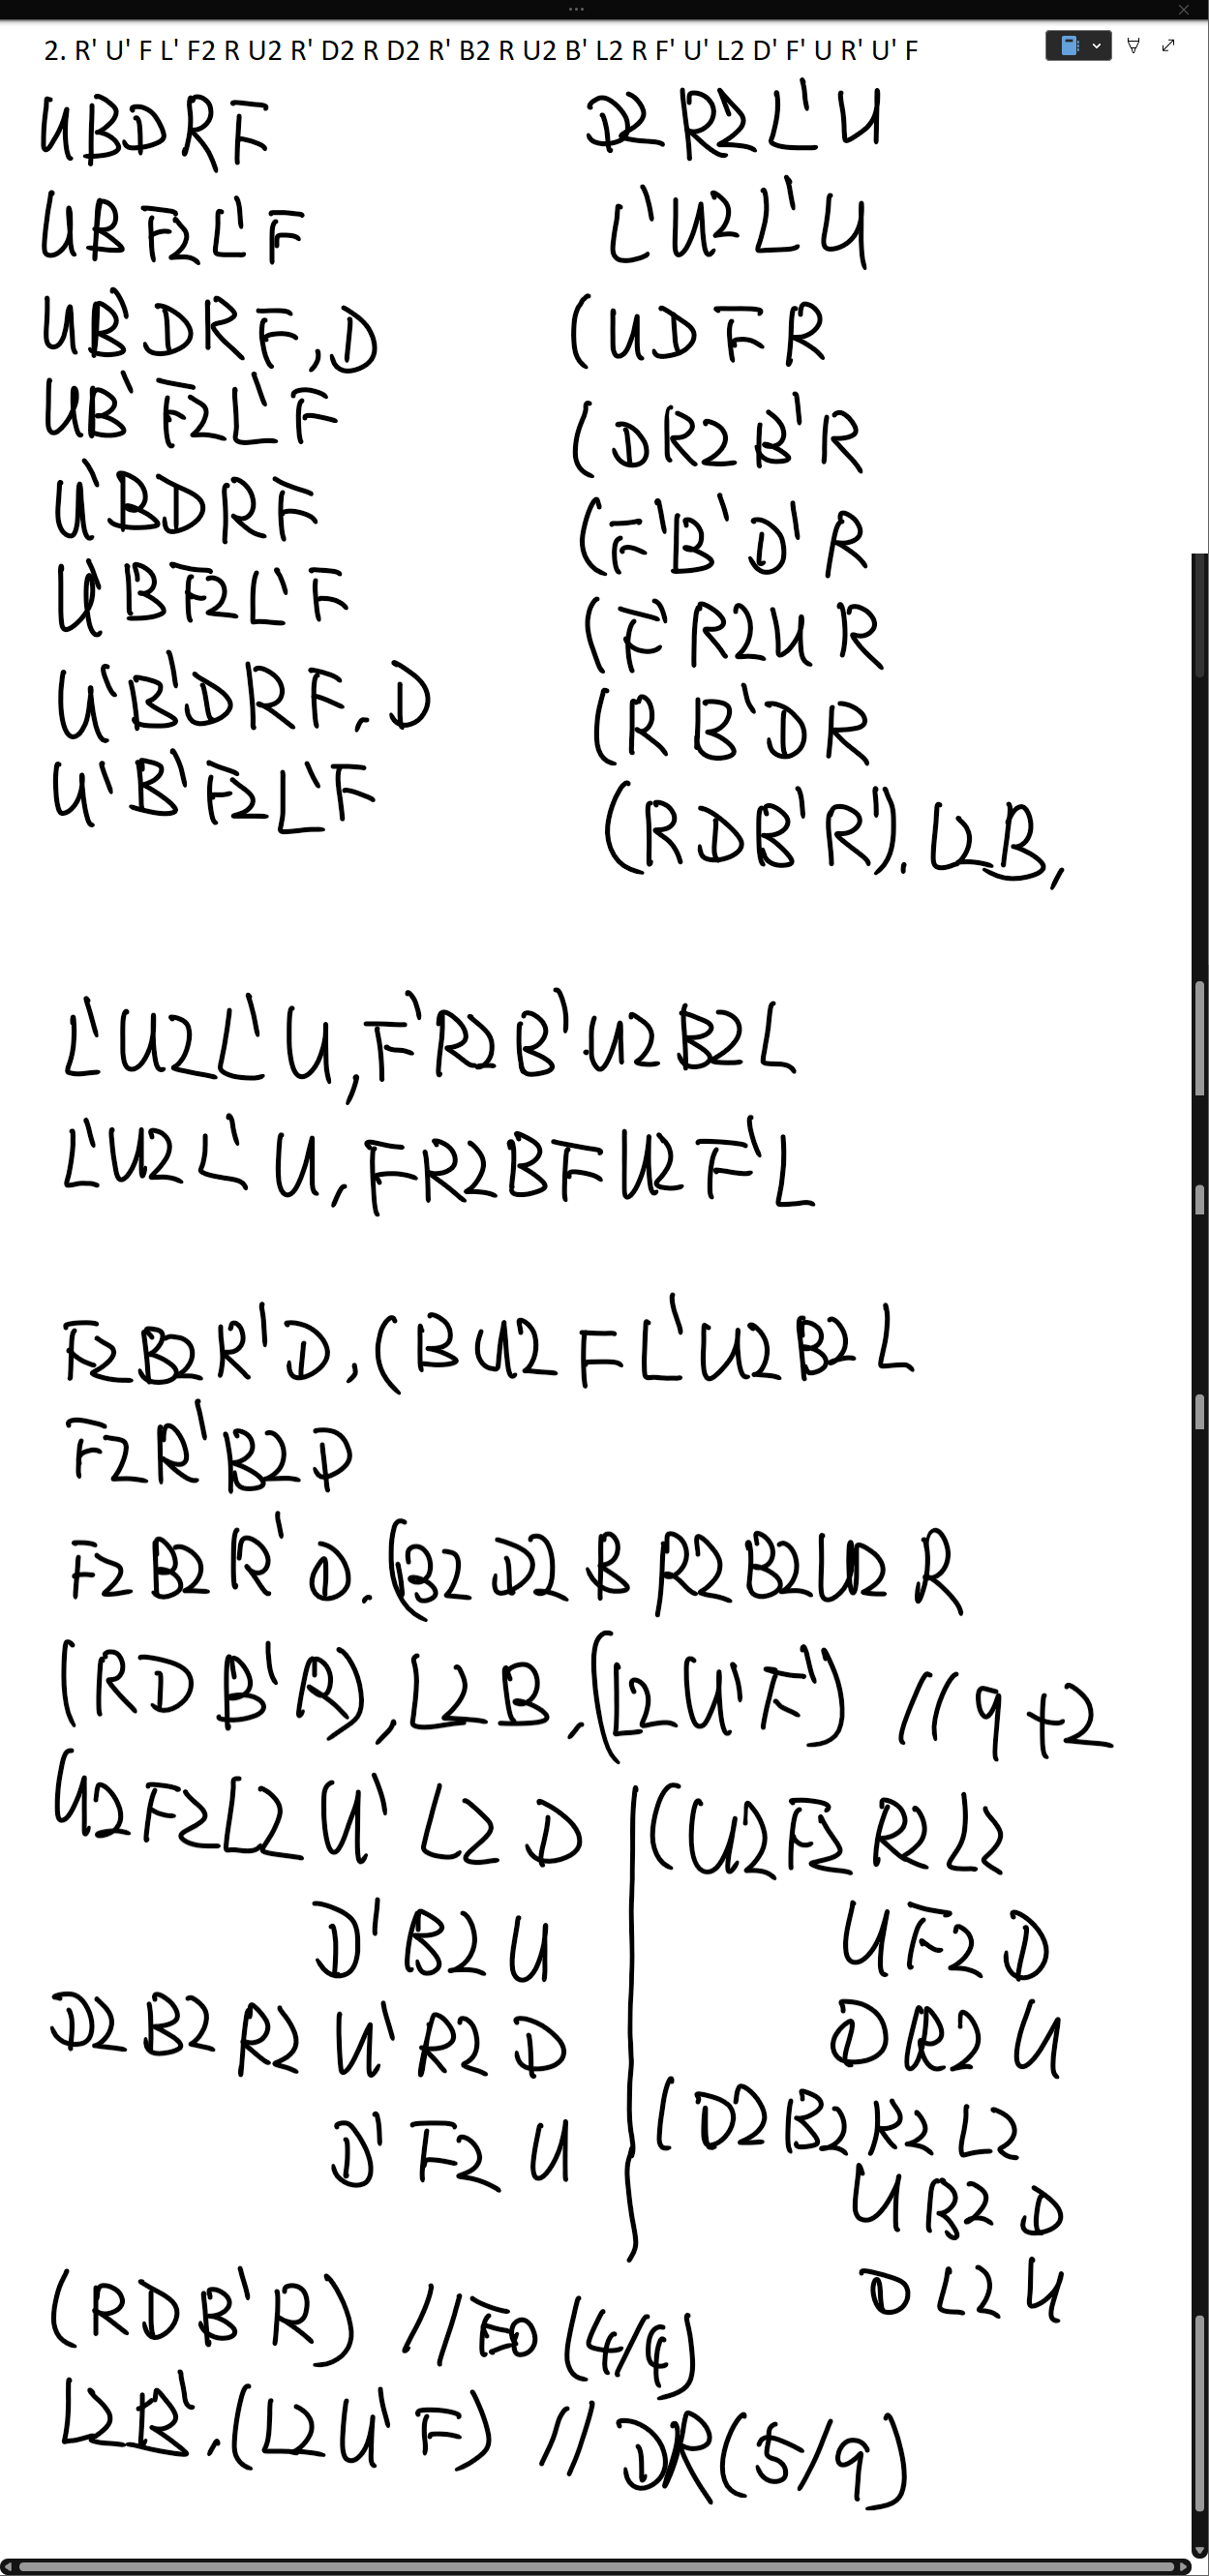 2. R' U' F L' F2 R U2 R' D2 R D2 R' B2 R U2 B' L2 R F' U' L2 D' F' U R' U' F
UBDRF
UBF2L'F
UB'DRF,D
UB'F2L'F
U'BDRF
U'BF2L'F
U'B'DRF,D
U'B'F2L'F
D2R2L'U
L'U2L'U
(UDFR
(DR2B'R
(F'B'D'R
(F'R2UR
(RB'DR
(RDB'R'), L2B,
L'U2L'U, F'R2B'U2B2L
L'U2L'U, FR2BFU2F'L
F2B2R'D, (BU2FL'U2B2L
F2R'B2D
F2B2R'D, (B2D2BR2B2U2R
(RDB'R), L2B, (L2U'F') //9+2
U2F2L2U'L2D
D'B2U
D2B2R2U'R2D
D'F2U
(U2F2R2L2
UF2D
DR2U
(D2B2R2L2
UB2D
DL2U
(RDB'R) //EO (4/4)
L2B', (L2U'F) //DR(5/9)